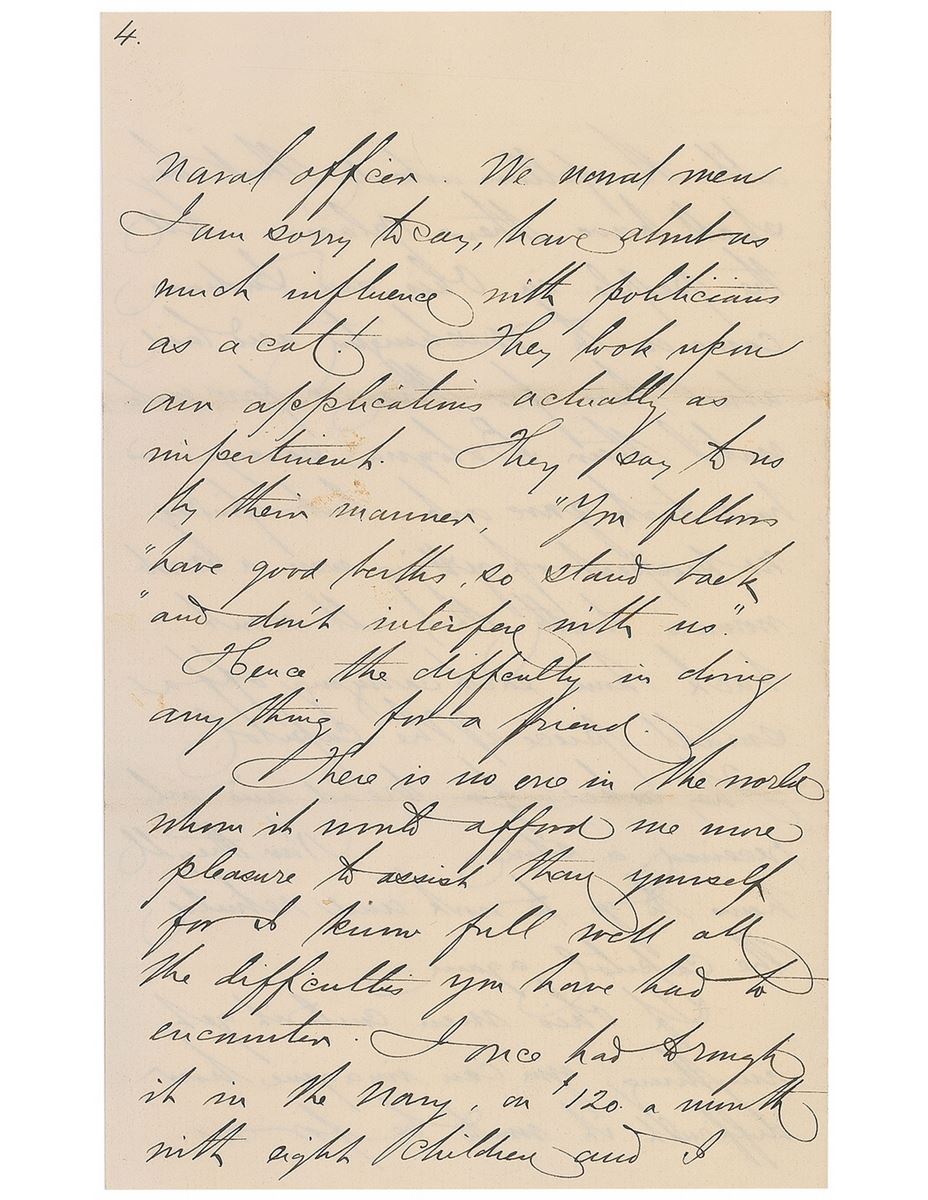 4.
Naval officer. We naval men
I am sorry to say, have about as
much influence with politicians
as a cat! They look upon
our applications actually as
impertinent. They say to us
by their manner, "You fellows
"have good berths, so stand back
"and don't interfere with us."
Hence the difficulty in doing
anything for a friend.
There is no one in the world
whom it would afford me more
pleasure to assist than yourself
for I know full well all
the difficulties you have had to
encounter. I once had to rough
it in the Navy, on $120. a month
with eight children and I